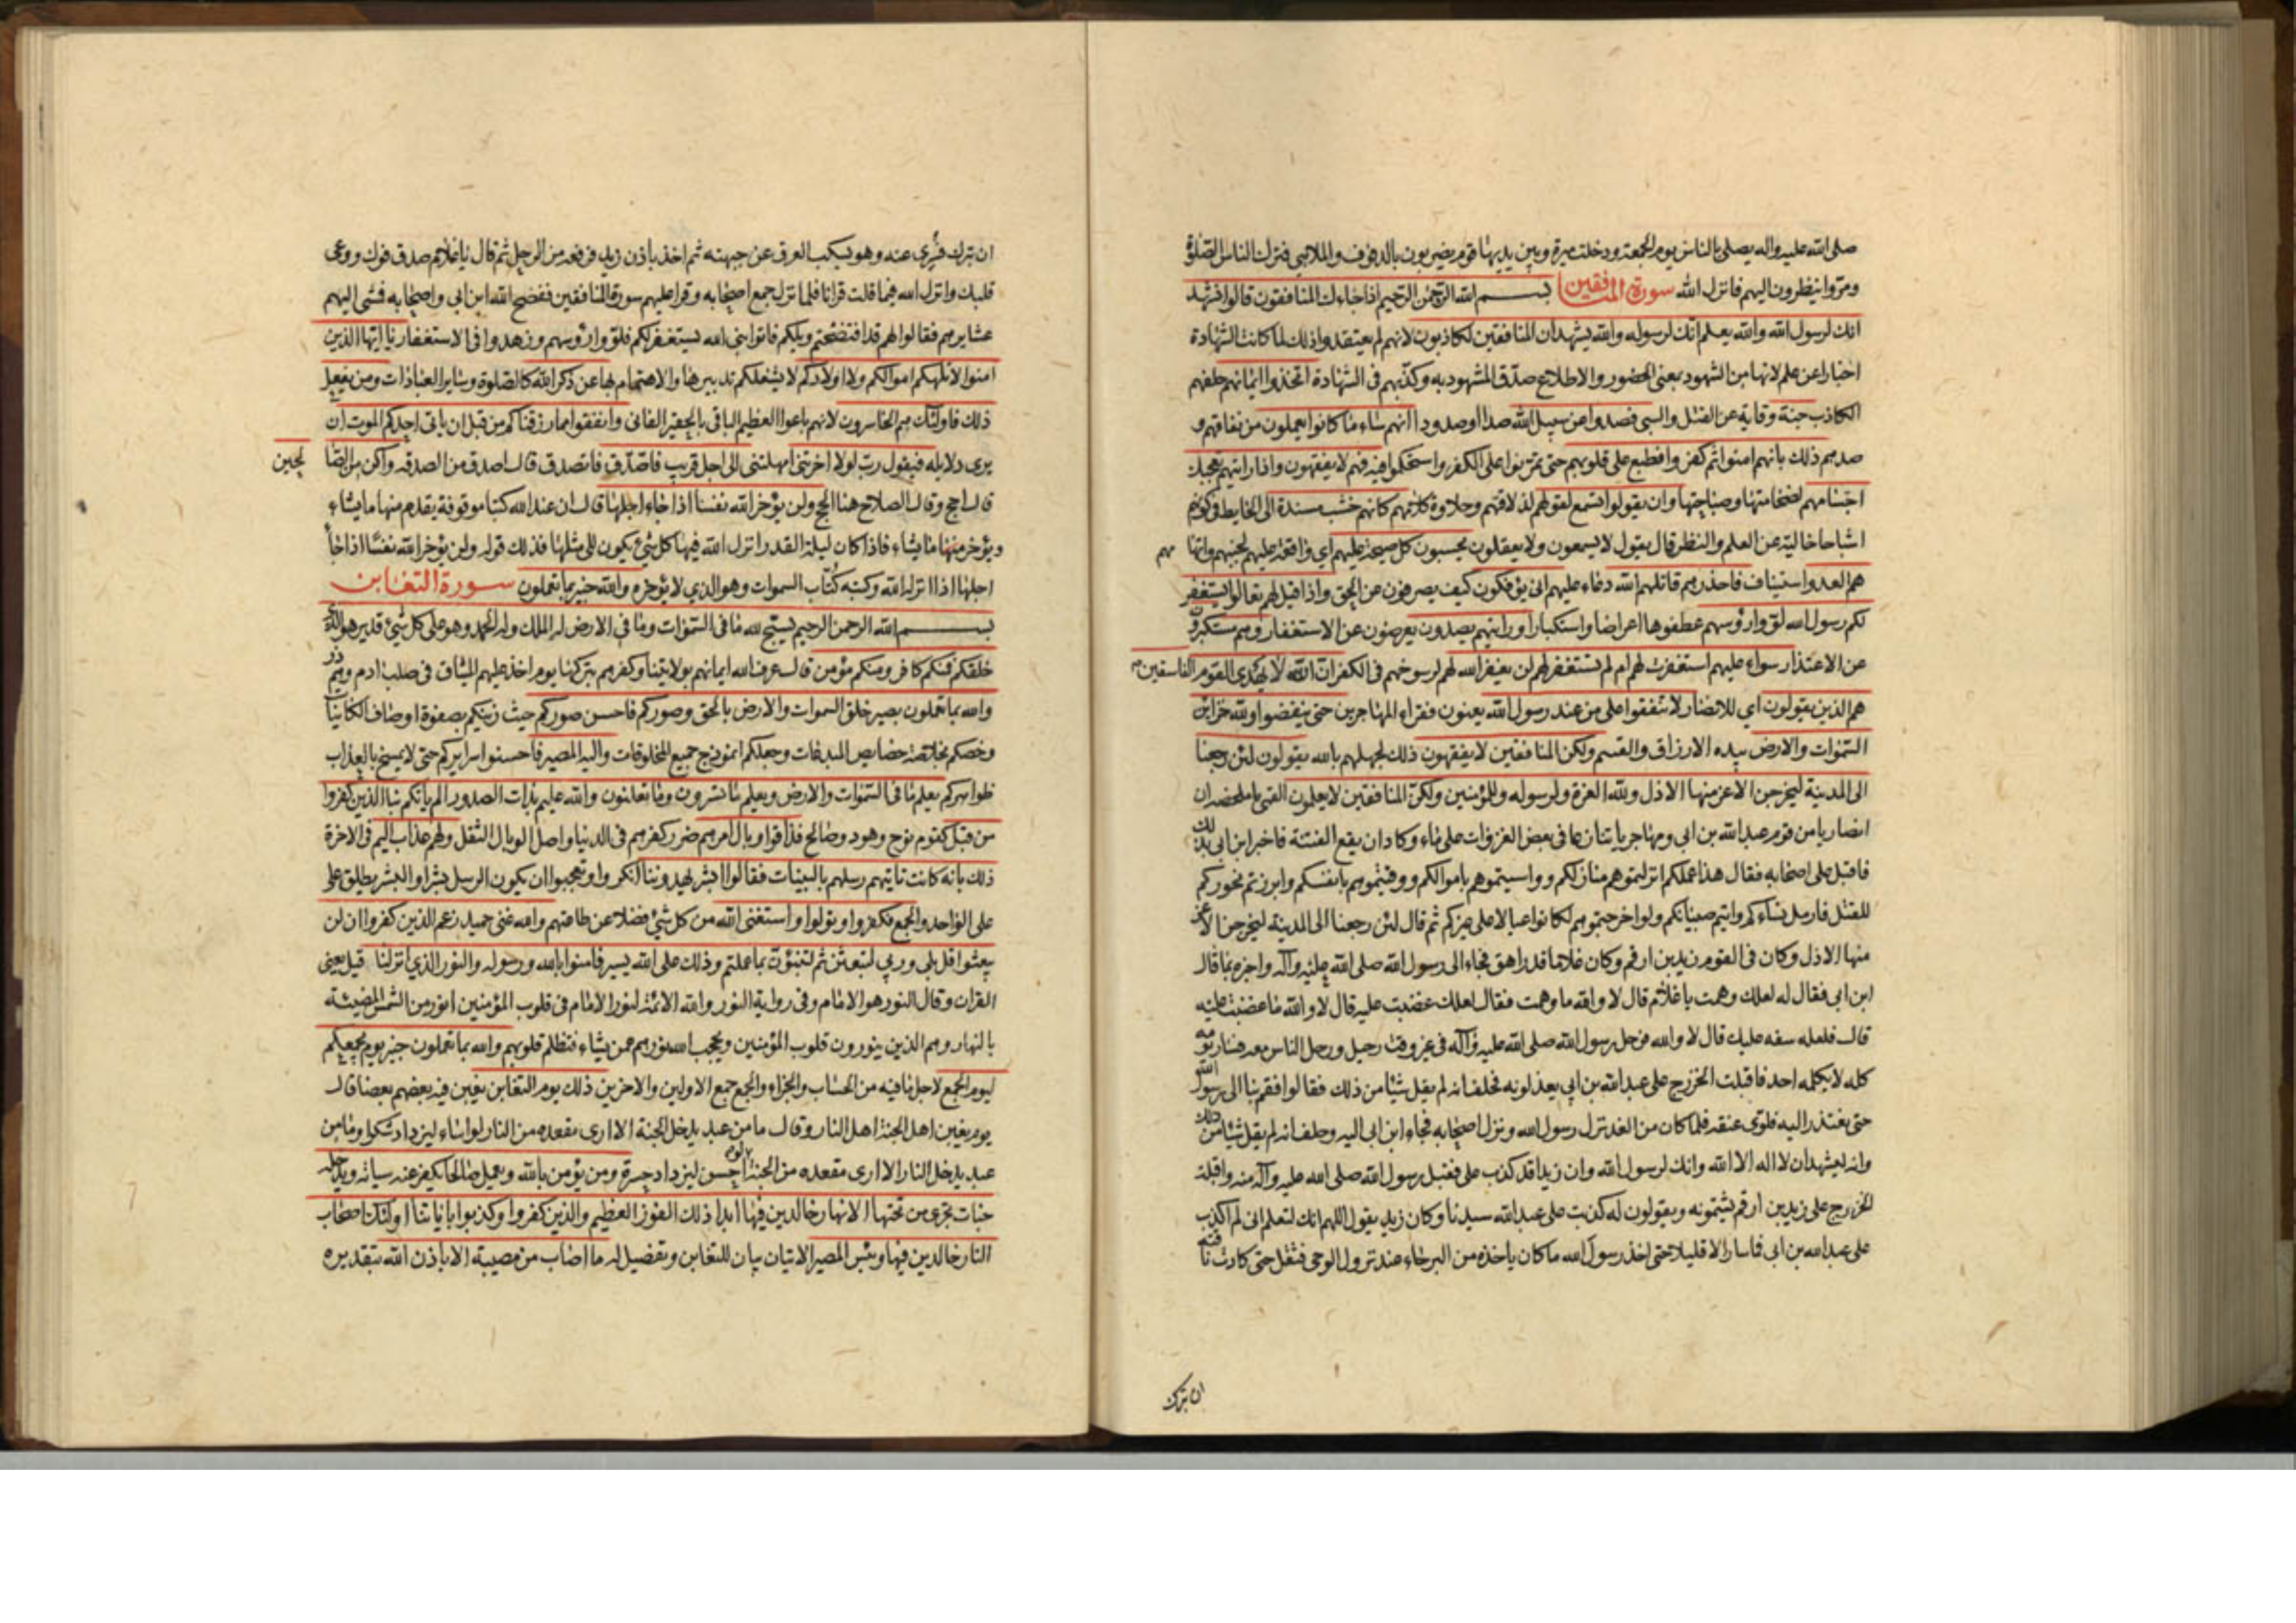 صلى الله عليه واله يصلى بالناس يوم الجمعة ودخلت ميرة وبين يديها قوم يضربون بالدفوف والملاهي فترك الناس الصلوة
ومروا ينظرون اليهم فانزل الله سورة المنافقين بسم الله الرحمن الرحيم اذا جاءك المنافقون قالوا نشهد
انك لرسول الله والله يعلم انك لرسوله والله يشهد ان المنافقين لكاذبون لانهم لم يعتقدوا ذلك لما كانت الشهادة
اخبارا عن علم لانها من الشهود بمعنى الحضور والاطلاع صدق المشهود به وكذبهم فى الشهادة اتخذوا ايمانهم حلفهم
الكاذب جنة وقاية عن القتل والسبى فصدوا عن سبيل الله صدا او صدودا انهم ساء ما كانوا يعملون من نفاقهم و
صدهم ذلك بانهم امنوا ثم كفروا فطبع على قلوبهم حتى تمرنوا على الكفر واستحكموا فيه فهم لا يفقهون واذا رايتهم تعجبك
اجسامهم لضخامتها وصباحتها وان يقولوا تسمع لقولهم لذلاقتهم وحلاوة كلامهم كانهم خشب مسندة الى الحايط فى كونهم
اشباحا خالية عن العلم والنظر قال يقول لا يسمعون ولا يعقلون يحسبون كل صيحة عليهم اي واقعة عليهم لجبنهم واتهامهم
هم العدو استيناف فاحذرهم قاتلهم الله دعاء عليهم انى يؤفكون كيف يصرفون عن الحق واذا قيل لهم تعالوا يستغفر
لكم رسول الله لووا رؤسهم عطفوها اعراضا واستكبارا ورايتهم يصدون يعرضون عن الاستغفار وهم مستكبرون
عن الاعتذار سواء عليهم استغفرت لهم ام لم تستغفر لهم لن يغفر الله لهم لرسوخهم فى الكفر ان الله لا يهدى القوم الفاسقين
هم الذين يقولون اي للانصار لا تنفقوا على من عند رسول الله يعنون فقراء المهاجرين حتى ينفضوا ولله خزاين
السموات والارض بيده الارزاق والقسم ولكن المنافقين لا يفقهون ذلك لجهلهم بالله يقولون لئن رجعنا
الى المدينة ليخرجن الاعز منها الاذل ولله العزة ولرسوله وللمؤمنين ولكن المنافقين لا يعلمون القمى ما ملخصه ان
انصاريا من قوم عبد الله بن ابى ومهاجريا تنازعا فى بعض الغزوات على ماء وكاد ان يقع الفتنة فاخبر ابن ابى بذلك
فاقبل على اصحابه فقال هذا عملكم انزلتموهم منازلكم وواسيتموهم باموالكم ووقيتموهم بانفسكم وابرزتم نحوركم
للقتل فارمل نساءكم وايتم صبيانكم ولو اخرجتموهم لكانوا عيالا على غيركم ثم قال لئن رجعنا الى المدينة ليخرجن الاعز
منها الاذل وكان فى القوم زيد بن ارقم وكان غلاما قد راهق فجاء الى رسول الله صلى الله عليه وآله واخبره بما قال
ابن ابى فقال له لعلك وهمت يا غلام قال لا والله ما وهمت فقال لعلك غضبت عليه قال لا والله ما غضبت عليه
قال فلعله سفه عليك قال لا والله فرحل رسول الله صلى الله عليه وآله فى غير وقت رحيل ورحل الناس معه فسار يومه
كله لا يكلمه احد فاقبلت الخزرج على عبد الله بن ابي يعذلونه فحلف انه لم يقل شيئا من ذلك فقالوا فقم بنا الى رسول الله
حتى يعتذر اليه فلوى عنقه فلما كان من الغد نزل رسول الله ونزل اصحابه فجاء ابن ابى اليه وحلف انه لم يقل شيئا من ذلك
وانه ليشهد ان لا اله الا الله وانك لرسول الله وان زيدا قد كذب على فقبل رسول الله صلى الله عليه وآله منه واقبلت
الخزرج على زيد بن ارقم يشتمونه ويقولون له كذبت على عبد الله سيدنا وكان زيد يقول اللهم انك لتعلم انى لم اكذب
على عبد الله بن ابى فما سار الا قليلا حتى اخذ رسول الله ما كان ياخذه من البرحاء عند نزول الوحى فثقل حتى كادت ناقته
ان تبرك
ان تبرك فسُرّي عنه وهو يسكب العرق عن جبهته ثم اخذ باذن زيد فرفعه من الرحل ثم قال يا غلام صدق فوك ووعى
قلبك وانزل الله فيما قلت قرانا فلما نزل جمع اصحابه وقرا عليهم سورة المنافقين ففضح الله ابن ابى واصحابه فمشى اليهم
عشايرهم فقالوا لهم قد افتضحتم ويلكم فاتوا نبى الله يستغفر لكم فلووا رؤسهم وزهدوا فى الاستغفار يا ايها الذين
امنوا لا تلهكم اموالكم ولا اولادكم لا يشغلكم تدبيرها والاهتمام بها عن ذكر الله كالصلوة وسائر العبادات ومن يفعل
ذلك فاولئك هم الخاسرون لانهم باعوا العظيم الباقى بالحقير الفانى وانفقوا مما رزقناكم من قبل ان ياتى احدكم الموت ان
يرى دلايله فيقول رب لولا اخرتنى امهلتنى الى اجل قريب فاصدق فاتصدق قال اصدق من الصدقة واكن من الصالحين
قال احج وقال الصلاح هنا الحج ولن يؤخر الله نفسا اذا جاء اجلها قال ان عند الله كتبا موقوفة يقدم منها ما يشاء
ويؤخر منها ما يشاء فاذا كان ليلة القدر انزل الله فيها كل شئ يكون الى مثلها فذلك قوله ولن يؤخر الله نفسا اذا جاء
اجلها اذا انزله الله وكتبه كُتّاب السموات وهو الذي لا يؤخره والله خبير بما تعملون سورة التغابن
بسم الله الرحمن الرحيم يسبح لله ما فى السموات وما في الارض له الملك وله الحمد وهو على كل شئ قدير هو الذى
خلقكم فمنكم كافر ومنكم مؤمن قال عرف الله ايمانهم بولايتنا وكفرهم بتركها يوم اخذ عليهم الميثاق فى صلب ادم وهم ذر
والله بما تعملون بصير خلق السموات والارض بالحق وصوركم فاحسن صوركم حيث زينكم بصفوة اوصاف الكاينات
وخصكم بخلاصة خصايص المبدعات وجعلكم انموذج جميع المخلوقات واليه المصير فاحسنوا سرايركم حتى لا يمسخ بالعذاب
ظواهركم يعلم ما فى السموات والارض ويعلم ما تسرون وما تعلنون والله عليم بذات الصدور الم ياتكم نبا الذين كفروا
من قبل كقوم نوح وهود وصالح فذاقوا وبال امرهم ضرر كفرهم فى الدنيا واصل الوبال الثقل ولهم عذاب اليم فى الاخرة
ذلك بانه كانت تاتيهم رسلهم بالبينات فقالوا ابشر يهدوننا انكروا وتعجبوا ان يكون الرسل بشرا والبشر يطلق على
على الواحد والجمع فكفروا وتولوا واستغنى الله من كل شئ فضلا عن طاعتهم والله غنى حميد زعم الذين كفروا ان لن
يبعثوا قل بلى وربي لتبعثن ثم لتنبؤن بما عملتم وذلك على الله يسير فامنوا بالله ورسوله والنور الذي انزلنا قيل يعنى
القران وقال النور هو الامام وفى رواية النور والله الائمة لنور الامام فى قلوب المؤمنين انور من الشمس المضيئة
بالنهار وهم الذين ينورون قلوب المؤمنين ويحجب الله نورهم عمن يشاء فتظلم قلوبهم والله بما تعملون خبير يوم يجمعكم
ليوم الجمع لاجل ما فيه من الحساب والجزاء والجمع جمع الاولين والاخرين ذلك يوم التغابن يغبن فيه بعضهم بعضا قال
يوم يغبن اهل الجنة اهل النار وقال ما من عبد يدخل الجنة الا ارى مقعده من النار لو اساء ليزداد شكرا وما من
عبد يدخل النار الا ارى مقعده من الجنة لو احسن ليزداد حسرة ومن يؤمن بالله ويعمل صالحا يكفر عنه سيئاته ويدخله
جنات تجرى من تحتها الانهار خالدين فيها ابدا ذلك الفوز العظيم والذين كفروا وكذبوا باياتنا اولئك اصحاب
النار خالدين فيها وبئس المصير الايتان بيان للتغابن وتفصيل له ما اصاب من مصيبة الا باذن الله بتقديره